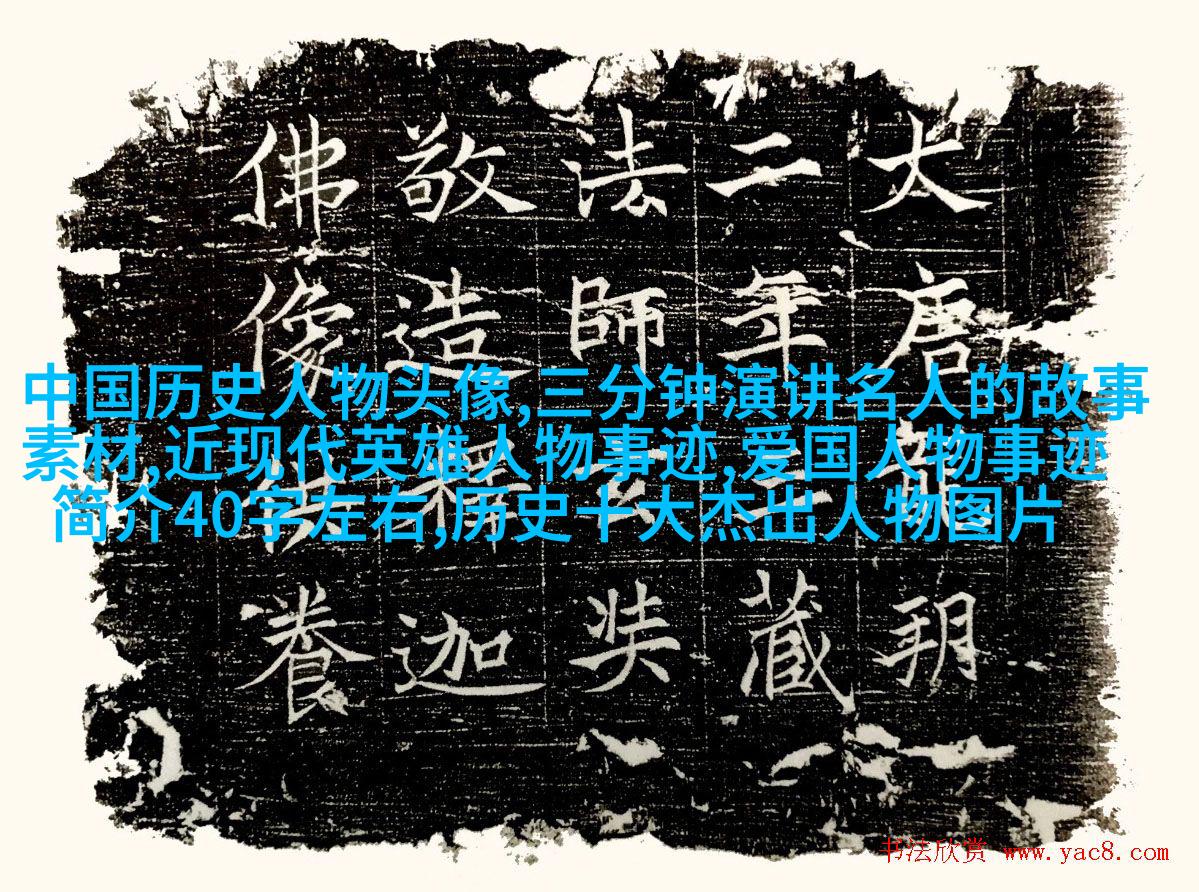 大唐龍朔
二年三藏
法師玄奘
敬造釋迦
佛像供養
中国历史人物头像,三分钟演讲名人的故事
素材,近现代英雄人物事迹,爱国人物事迹
简介40字左右,历史十大杰出人物图片
书法欣赏 www.yac8.com